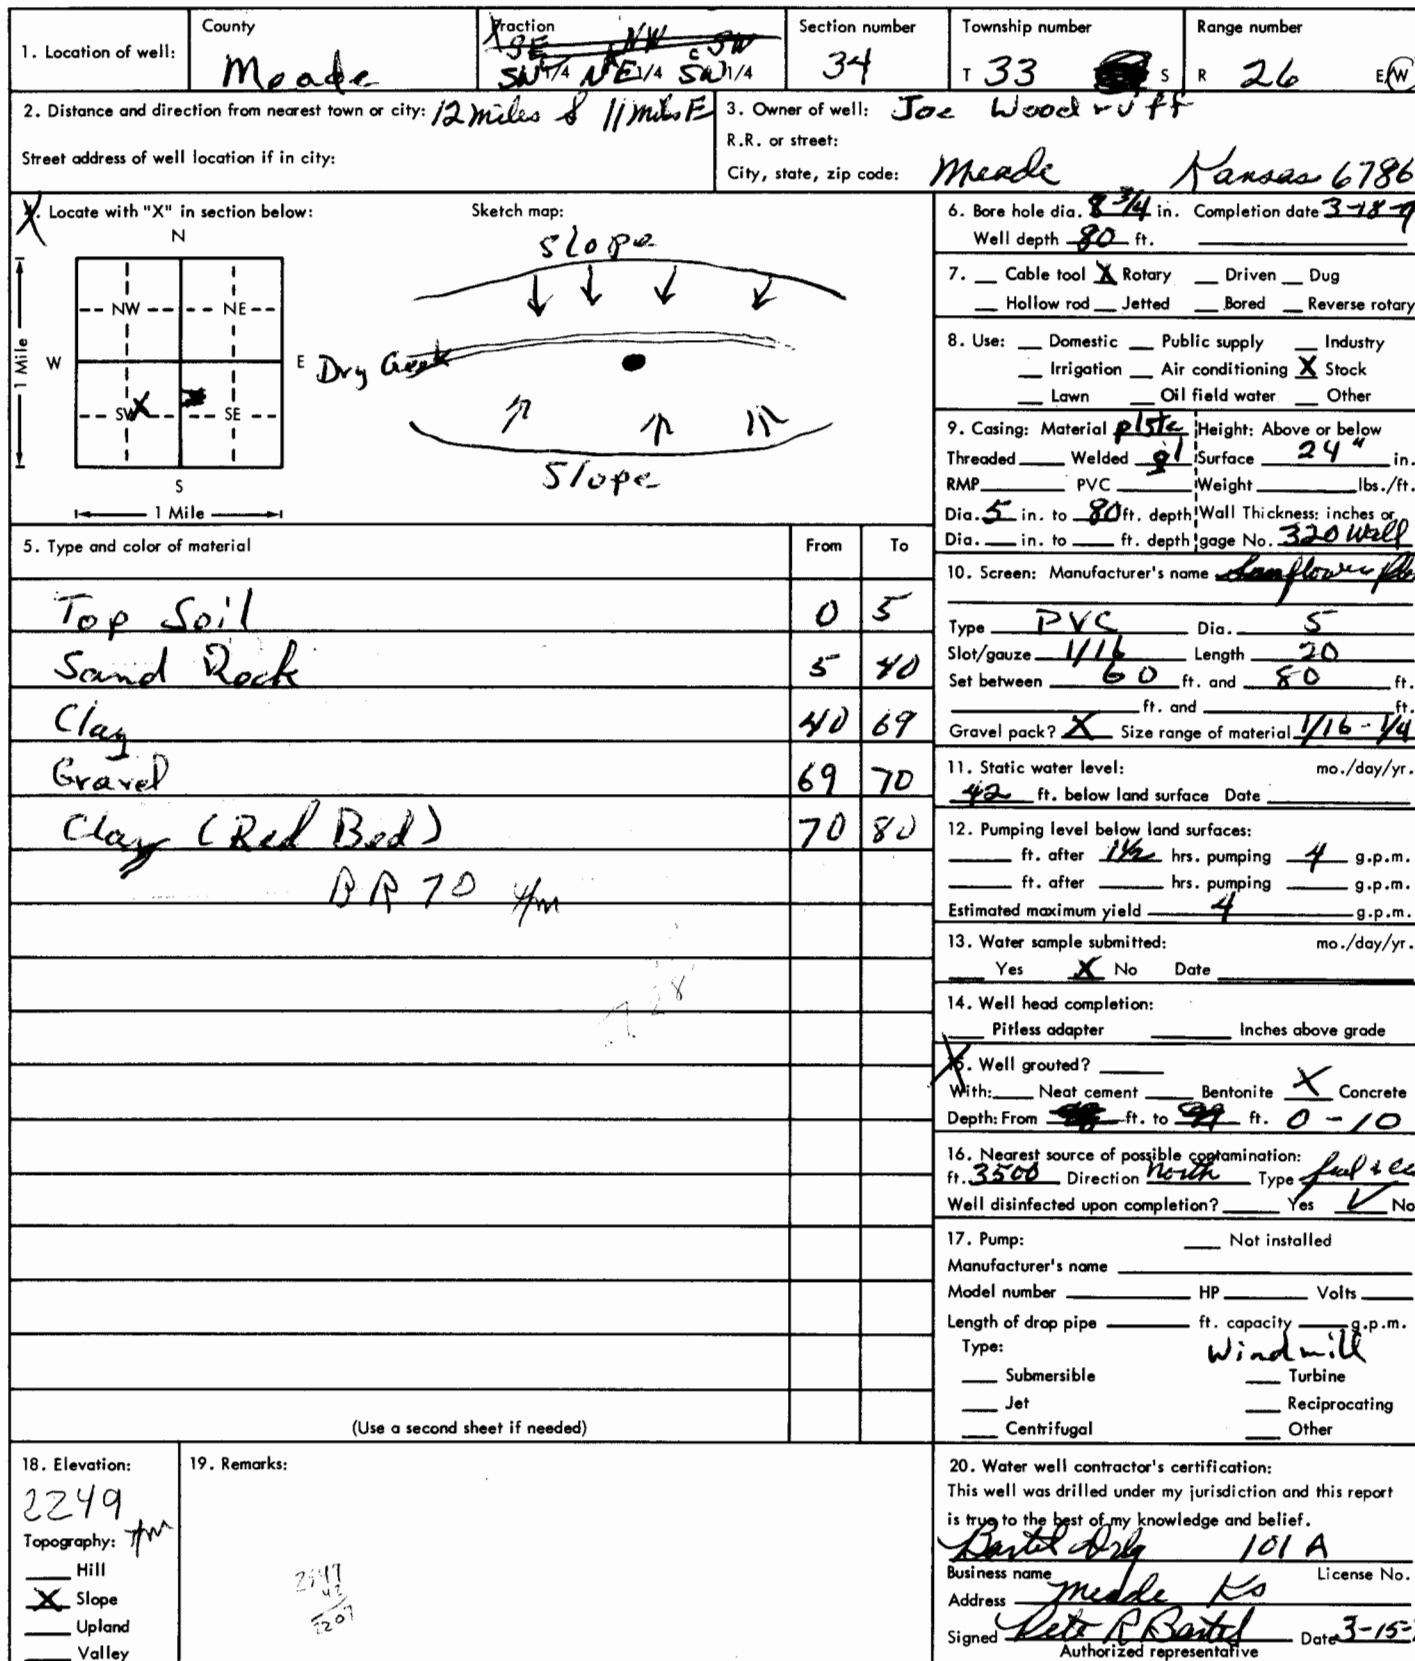 County Fraction Section number Township number Range number
1. Location of well: Meade SW 1/4 NE 1/4 SW 1/4 34 T 33 S R 26 E/W
2. Distance and direction from nearest town or city: 12 miles S 11 miles E
Street address of well location if in city:
3. Owner of well: Joe Woodruff
R.R. or street:
City, state, zip code: Meade Kansas 6786
4. Locate with "X" in section below: Sketch map:
N
NW NE
W E
SW X SE
S
1 Mile
1 Mile
Slope
Dry Creek
Slope
5. Type and color of material From To
Top Soil 0 5
Sand Rock 5 40
Clay 40 69
Gravel 69 70
Clay (Red Bed) 70 80
BR 70
(Use a second sheet if needed)
6. Bore hole dia. 8 3/4 in. Completion date 3-18-
Well depth 80 ft.
7. Cable tool X Rotary Driven Dug
Hollow rod Jetted Bored Reverse rotary
8. Use: Domestic Public supply Industry
Irrigation Air conditioning X Stock
Lawn Oil field water Other
9. Casing: Material Height: Above or below
Threaded Welded gl Surface 24" in.
RMP PVC Weight lbs./ft.
Dia. 5 in. to 80 ft. depth Wall Thickness: inches or
Dia. in. to ft. depth gage No. 320 Wall
10. Screen: Manufacturer's name Sunflower
Type PVC Dia. 5
Slot/gauze 1/16 Length 20
Set between 60 ft. and 80 ft.
ft. and ft.
Gravel pack? X Size range of material 1/16 - 1/4
11. Static water level: mo./day/yr.
42 ft. below land surface Date
12. Pumping level below land surfaces:
ft. after 1 1/2 hrs. pumping 4 g.p.m.
ft. after hrs. pumping g.p.m.
Estimated maximum yield 4 g.p.m.
13. Water sample submitted: mo./day/yr.
Yes X No Date
14. Well head completion:
Pitless adapter Inches above grade
15. Well grouted?
With: Neat cement Bentonite X Concrete
Depth: From ft. to ft. 0 - 10
16. Nearest source of possible contamination:
ft. 3500 Direction North Type
Well disinfected upon completion? Yes ✓ No
17. Pump: Not installed
Manufacturer's name
Model number HP Volts
Length of drop pipe ft. capacity g.p.m.
Type: Windmill
Submersible Turbine
Jet Reciprocating
Centrifugal Other
18. Elevation:
2249
Topography:
Hill
X Slope
Upland
Valley
19. Remarks:
20. Water well contractor's certification:
This well was drilled under my jurisdiction and this report
is true to the best of my knowledge and belief.
Bartel Drlg 101 A
Business name License No.
Address Meade Ks
Signed Pete R Bartel Date 3-15-
Authorized representative